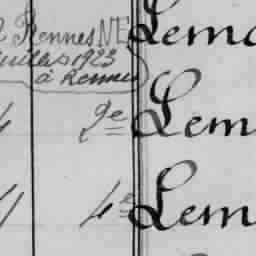 Rennes NE Lem
Juillet 1923
à Rennes
2e Lem
4e Lem